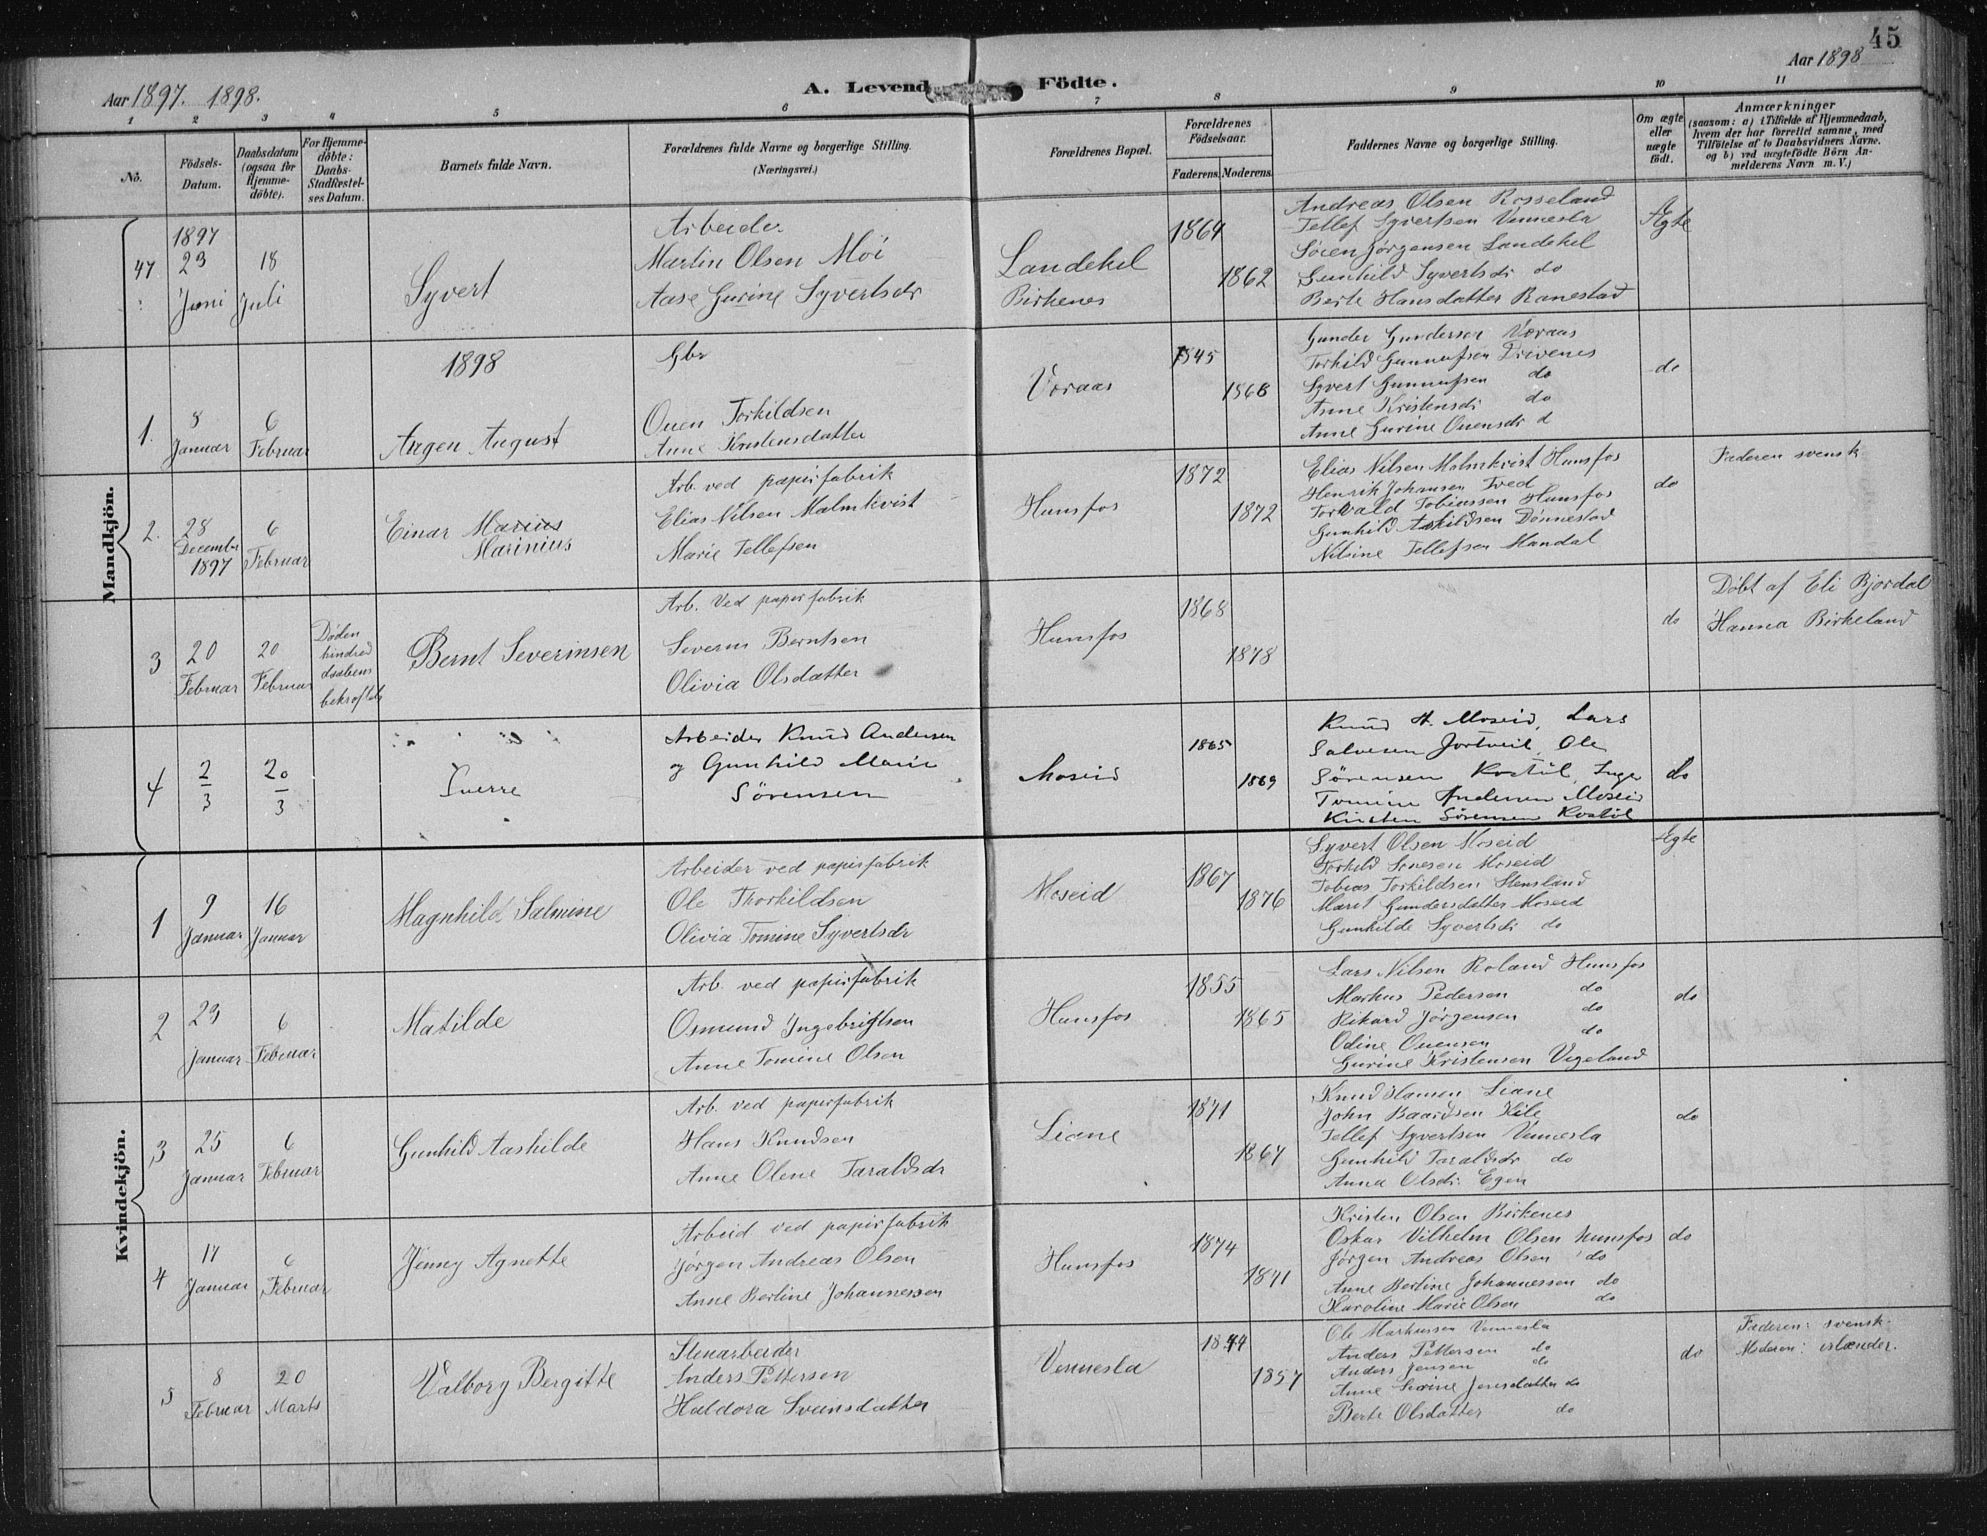 45
Aar 1897. 1898.
A. Levende Födte.
Aar 1898
1 2 3 4 5 6 7 8 9 10 11
No.
Födsels-Datum.
Daabsdatum (ogsaa for Hjemme-döbte).
For Hjemme-döbte: Daabs-Stadfæstel-ses Datum.
Barnets fulde Navn.
Forældrenes fulde Navne og borgerlige Stilling.
(Næringsvei.)
Forældrenes Bopæl.
Forældrenes Födselsaar.
Faderens. Moderens.
Faddernes Navne og borgerlige Stilling.
Om ægte eller uægte födt.
Anmærkninger
(saasom: a) i Tilfælde af Hjemmedaab,
hvem der har forrettet samme, med
Tilföielse af to Daabsvidners Navne.
og b) ved uægtefödte Börn An-
melderens Navn m. V.)
Mandkjön.
47
1897
23
Juni
18
Juli
Syvert
Arbeider
Martin Olsen Moi
Aase Gurine Syvertsdr
Landekel
Birkenes
1864
1862
Andreas Olsen Rosseland
Tellef Syvertsen Vennesla
Sören Jörgensen Landekel
Gunhild Syvertsdr do
Berte Hansdatter Ranestad
Ægte
1898
1.
8
Januar
6
Februar
Aagen August
Gbr
Ouen Torkildsen
Anne Kristensdatter
Voraas
1845
1868
Gunder Gundersen Voraas
Torkild Gunnufsen Drivenes
Syvert Gunnufsen do
Anne Kristensdr do
Anne Gurine Ouensdr d
do
2.
28
December
1897
6
Februar
Einar Marius
Marinius
Arb. ved papirfabrik
Elias Nilsen Malmkvist
Marie Tellefsen
Hunsfos
1872
1872
Elias Nilsen Malmkvist Hunsfos
Henrik Johansen Tved
Torvald Tobiassen Hunsfos
Gunhild Askildsen Dönnestad
Nilsine Tellefsen Mandal
do
Faderen svensk
3
20
Februar
20
Februar
Döden
hindred
daabens
bekræftels
Bernt Severinsen
Arb. ved papirfabrik
Severin Berntsen
Olivia Olsdatter
Hunsfos
1868
1878
do
Döbt af Eli Bjordal
Hanna Birkeland
4
2/3
20/3
Sverre
Arbeider Knud Andersen
og Gunhild Marie
Sörensen
Moseid
1865
1869
Knud A. Moseid, Lars
Salvesen Jortveit, Ole
Sörensen Kostöl, Inge
Tomine Andersen Moseid
Kirsten Sörensen Kostöl
do
Kvindekjön.
1
9
Januar
16
Januar
Magnhild Salmine
Arbeider ved papirfabrik
Ole Thorkildsen
Olivia Tomine Syvertsdr
Moseid
1867
1876
Syvert Olsen Moseid
Torkild Moseid
Tobias Torkildsen Stensland
Marit Gundersdatter Moseid
Gunhilde Syvertsdr do
Ægte
2
23
Januar
6
Februar
Matilde
Arb. ved papirfabrik
Osmund Ingebrigtsen
Anne Tomine Olsen
Hunsfos
1855
1865
Lars Nilsen Roland Hunsfos
Markus Pedersen do
Rikard Jörgensen do
Odine Ouensen do
Gurine Kristensen Vigeland
do
3
25
Januar
6
Februar
Gunhild Aashilde
Arb. ved papirfabrik
Hans Knudsen
Anne Olene Taraldsdr
Liane
1871
1867
Knud Hansen Liane
John Baardsen Kile
Tellef Syvertsen Vennesla
Gunhild Taraldsdr do
Anna Olsdr. Egen
do
4
17
Januar
6
Februar
Jenny Agnette
Arbeid ved papirfabrik
Jörgen Andreas Olsen
Anne Bertine Johannessen
Hunsfos
1874
1871
Kristen Olsen Birkenes
Oskar Vilhelm Olsen Hunsfos
Jörgen Andreas Olsen do
Anne Bertine Johannessen do
Karoline Marie Olsen do
do
5
8
Februar
20
Marts
Valborg Bergitte
Stenarbeider
Anders Pettersen
Haldora Svensdatter
Vennesla
1844
1857
Ole Markussen Vennesla
Anders Pettersen do
Anders Jensen do
Anne Serine Jensdatter do
Berte Olsdatter do
do
Faderen: svensk.
Moderen: islænder.